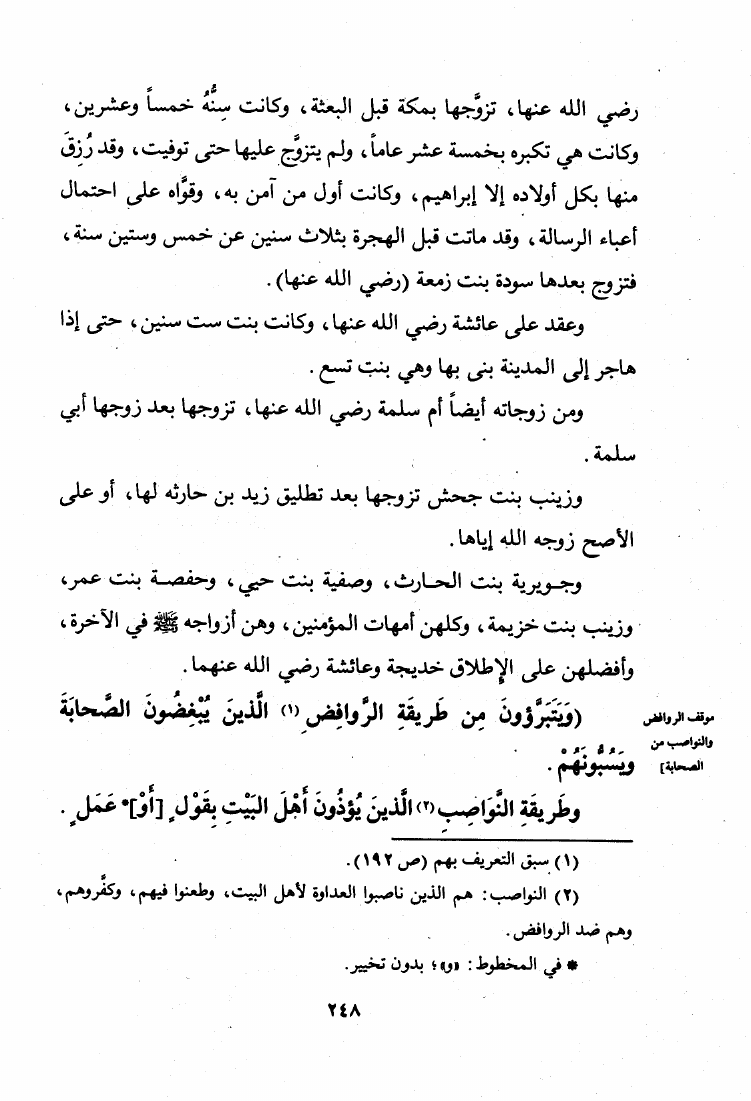 رضي الله عنها، تزوَّجها بمكة قبل البعثة، وكانت سِنُّهُ خمساً وعشرين،
وكانت هي تكبره بخمسة عشر عاماً، ولم يتزوَّج عليها حتى توفيت، وقد رُزِقَ
منها بكل أولاده إلا إبراهيم، وكانت أول من آمن به، وقوَّاه على احتمال
أعباء الرسالة، وقد ماتت قبل الهجرة بثلاث سنين عن خمس وستين سنة،
فتزوج بعدها سودة بنت زمعة (رضي الله عنها).
وعقد على عائشة رضي الله عنها، وكانت بنت ست سنين، حتى إذا
هاجر إلى المدينة بنى بها وهي بنت تسع.
ومن زوجاته أيضاً أم سلمة رضي الله عنها، تزوجها بعد زوجها أبي
سلمة.
وزينب بنت جحش تزوجها بعد تطليق زيد بن حارثه لها، أو على
الأصح زوجه الله إياها.
وجـويرية بنت الحـارث، وصفية بنت حيي، وحفصـة بنت عمر،
وزينب بنت خزيمة، وكلهن أمهات المؤمنين، وهن أزواجه ﷺ في الآخرة،
وأفضلهن على الإطلاق خديجة وعائشة رضي الله عنهما.
(وَيَتَبَرَّؤونَ مِن طَرِيقَةِ الرَّوافِضِ(١) الَّذينَ يُبْغِضُونَ الصَّحابَةَ
ويَسُبُّونَهُمْ.
وطَرِيقَةِ النَّوَاصِبِ(٢) الَّذينَ يُؤذُونَ أَهْلَ البَيْتِ بِقَوْلٍ [أَوْ]* عَمَلٍ.
موقف الروافض
والنواصب من
الصحابة]
(١) سبق التعريف بهم (ص ١٩٢).
(٢) النواصب: هم الذين ناصبوا العداوة لأهل البيت، وطعنوا فيهم، وكفَّروهم،
وهم ضد الروافض.
* في المخطوط: «و»؛ بدون تخيير.
٢٤٨